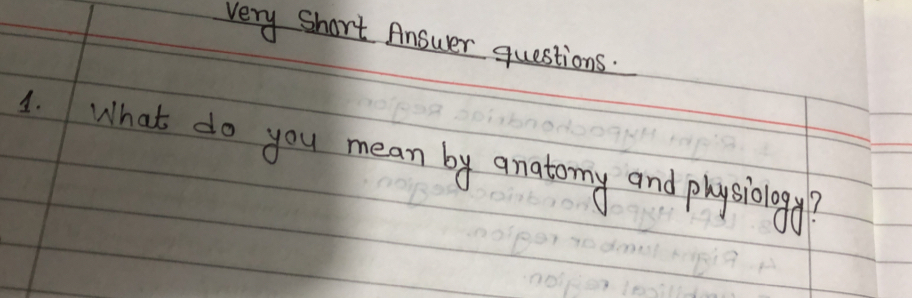 Very Short Answer questions.
1. What do you mean by anatomy and physiology?